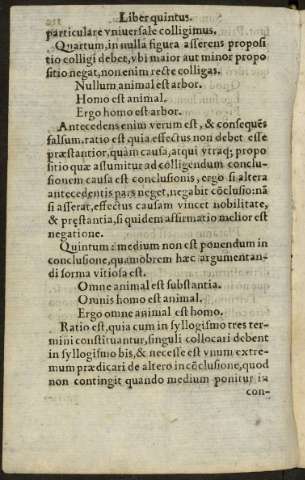 Liber quintus.
particulare vniuersale colligimus.
Quartum, in nulla figura asserens proposi
tio colligi debet, vbi maior aut minor propo
sitio negat, non enim recte colligas.
Nullum animal est arbor.
Homo est animal.
Ergo homo est arbor.
Antecedens enim verum est, & consequẽs
falsum. ratio est quia effectus non debet esse
præstantior, quàm causa, atqui vtraq; propo
sitio quæ assumitur ad colligendum conclu-
sionem causa est conclusionis, ergo si altera
antecedentis pars neget, negabit cõclusio: nã
si asserat, effectus causam vincet nobilitate,
& pręstantia, siquidem affirmatio melior est
negatione.
Quintum: medium non est ponendum in
conclusione, quamobrem hæc argumentan-
di forma vitiosa est.
Omne animal est substantia.
Omnis homo est animal.
Ergo omne animal est homo.
Ratio est, quia cum in syllogismo tres ter-
mini constituantur, singuli collocari debent
in syllogismo bis, & necesse est vnum extre-
mum prædicari de altero in cõclusione, quod
non contingit quando medium ponitur in
con-